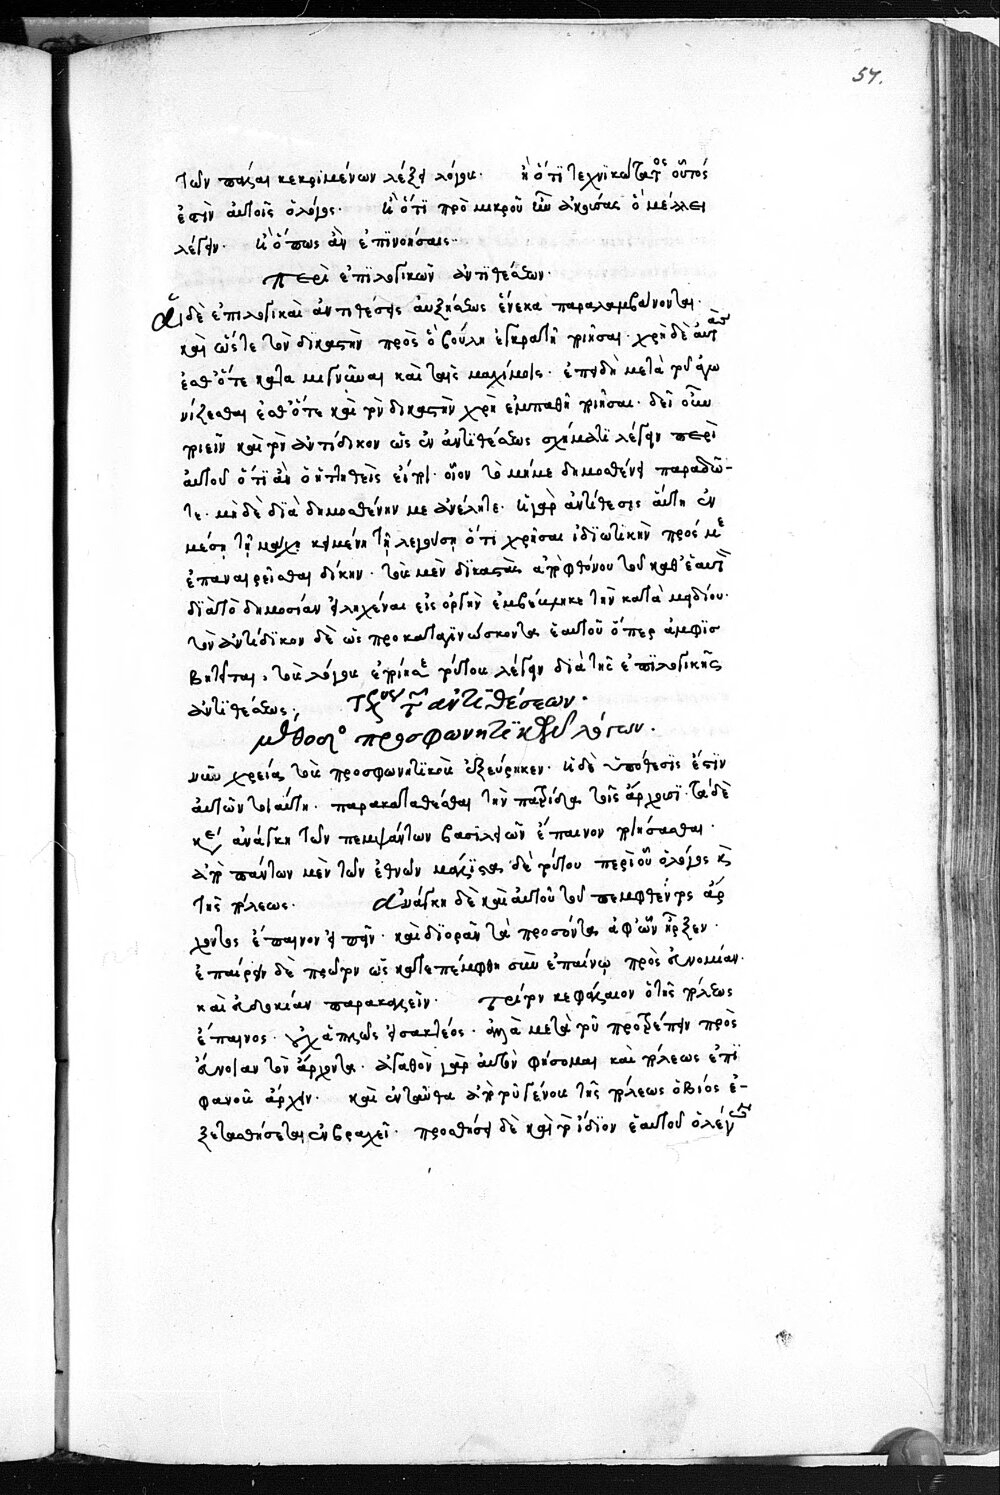 57.
τῶν πάλαι κεκριμένων λέξει λόγου. ἢ ὅτι τεχνικώτατος οὗτός
ἐστιν αὐτοῖς ὁ λόγος. ἢ ὅτι πρὸ μικροῦ ὃν ἀκρίσας ὃ μέλλει
λέγειν. ἢ ὅπως ἂν ἐπινοήσαις.
περὶ ἐπιλογικῶν ἀντιθέσεων.
Αἱ δὲ ἐπιλογικαὶ ἀντιθέσεις αὐξήσεως ἕνεκα παραλαμβάνονται.
καὶ ὥστε τὸν δικαστὴν πρὸς ὃ βούλει ἐγκρατῆ ποιῆσαι. χρὴ δὲ αὐτὰς
ἔσθ' ὅτε καταμιγνῦναι καὶ ταῖς μαχίμοις. ἐπειδὴ μετὰ τοῦ ἀγω
νίζεσθαι ἔσθ' ὅτε καὶ τὸν δικαστὴν χρὴ ἐμπαθῆ ποιῆσαι. δεῖ οὖν
ποιεῖν καὶ τὸν ἀντίδικον ὡς ἐν ἀντιθέσεως σχήματι λέγειν περὶ
αὐτοῦ ὅτι ἂν ὁ ἡττηθεὶς εἴποι. οἷον τὸ μή με δημοσθένει παραδῶ-
τε. μὴ δὲ διὰ δημοσθένην με ἀνέλητε. ἡ γὰρ ἀντίθεσις αὕτη ἐν
μέσῃ τῇ μάχῃ κειμένη τῇ λεγούσῃ ὅτι χρῆσαι ἰδιωτικὴν πρός με
ἐπαναιρεῖσθαι δίκην. τοὺς μὲν δικαστὰς ἀπὸ φθόνου τοῦ καθ' ἑαυτοῦ
διὰ τὸ δημοσίαν εἰληχέναι εἰς ὀργὴν ἐμβέβληκε τὴν κατὰ μειδίου.
τὸν ἀντίδικον δὲ ὡς προκαταγινώσκοντα ἑαυτοῦ ὅπερ ἀμφισ
βητεῖται, τοὺς λόγους ἐποίησε τούτου λέγειν διὰ τῆς ἐπιλογικῆς
ἀντιθέσεως. τέλος τῶν ἀντιθέσεων.
μέθοδος προσφωνητικοῦ λόγων.
νῦν χρεία τοὺς προσφωνητικοὺς ἐξεύρηκεν. ἡ δὲ ὑπόθεσις ἐστὶν
αὐτῶν τοιαύτη. παρακαταθέσθαι τὴν πατρίδα τοῖς ἄρχουσι. τὰ δὲ
ἀνάγκη τῶν πεμψάντων βασιλέων ἔπαινον ποιήσασθαι.
ἀπὸ πάντων μὲν τῶν ἐθνῶν μάλιστα δὲ τούτου περὶ οὗ ὁ λόγος καὶ
τῆς πόλεως. Ἀνάγκη δὲ καὶ αὐτοῦ τοῦ πεμφθέντος ἄρ
χοντος ἔπαινον εἰπεῖν. καὶ διορᾶν τὰ προσόντα ἀφ' ὧν ἦρξεν.
ἐπαίρειν δὲ πρῶτον ὡς κατεπέμφθη σὺν ἐπαίνῳ πρὸς εὐνομίαν.
καὶ εὐδοκίαν παρακαλεῖν. τρίτον κεφάλαιον ὁ τῆς πόλεως
ἔπαινος. οὐχ ἁπλῶς εἰσακτέος. ἀλλὰ μετὰ τοῦ προτρέπειν πρὸς
εὔνοιαν τὸν ἄρχοντα. ἀγαθὸν γὰρ αὐτὸν φήσομαι καὶ πόλεως ἐπι
φανοῦς ἄρχειν. καὶ ἐνταῦθα ἀπὸ τοῦ γένους τῆς πόλεως ὁ βίος ἐ-
ξετασθήσεται ἐν βραχεῖ. προσθήσει δὲ καὶ τὸ ἴδιον ἑαυτοῦ ὁ λέγων